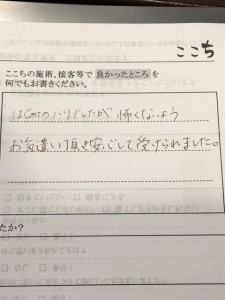 ここち
ここちの施術、接客等で良かったところを
何でもお書きください。
はじめてのハリでしたが怖くないよう
お気遣い頂き安心して受けられました。
たか？